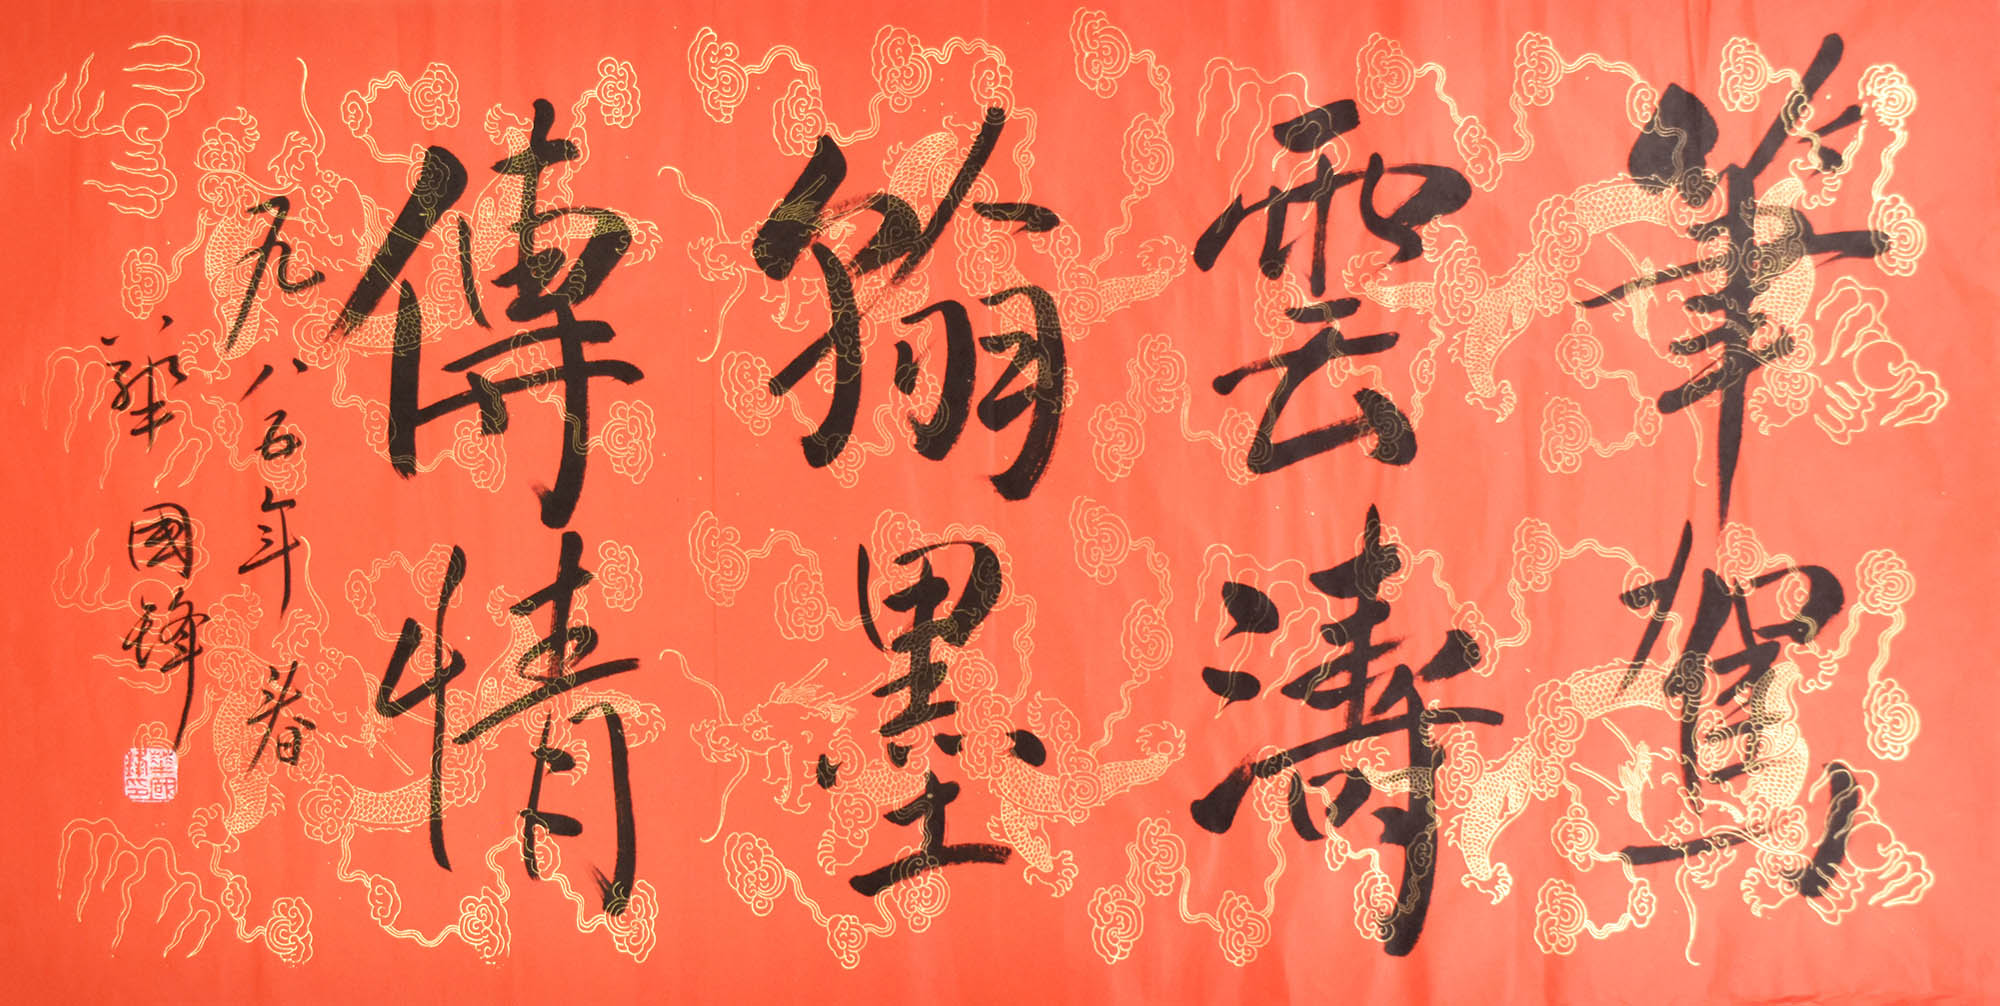 筆駕
雲濤
翰墨
傳情
九八五年春
華國鋒